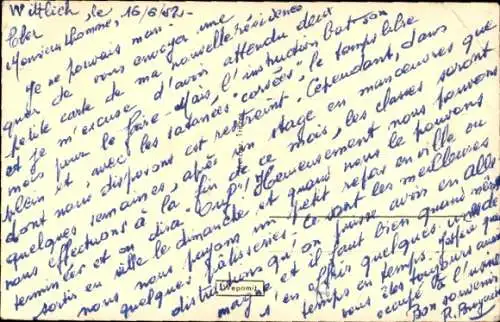 Wittlich, le 16/6/52.
Cher
Monsieur Thomme,
Je ne pouvais man-
quer de vous envoyer une
petite carte de ma nouvelle résidence
et je m'excuse d'avoir attendu deux
mois pour le faire. Mais, l'instruction bat son
plein et avec les séances "corsées", le temps libre
dont nous disposons est restreint. Cependant, dans
quelques semaines, après un stage en manœuvres que
nous effectuons à la fin de ce mois, les classes seront
terminées et on dira "Ouf"! Heureusement nous pouvons
sortir en ville le dimanche et quand nous le pouvons
nous nous payons un petit repas en ville ou
quelques pâtisseries. Ce sont les meilleures
distractions qu'on puisse avoir en Alle-
magne et il faut bien quand même
s'en offrir quelques unes de
temps en temps. J'espère que
vous êtes toujours aussi
occupé à l'usine
Bon souvenir
R.
Livepomitz